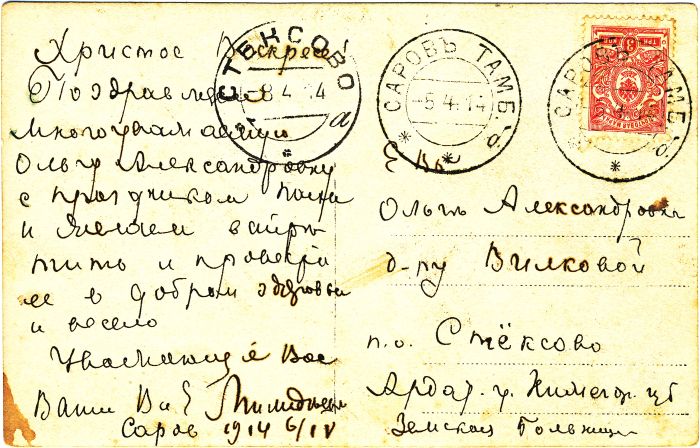 Христос Воскресе!
Поздравляем
многоуважаемую
Ольгу Александровну
с праздником Пасхи
и желаем встре-
тить и провести
ее в добром здоровьи
и весело
Уважающие Вас
Ваши В и Е
Саров 1914 6/IV
СТЕКСОВО
8 4 14
а
САРОВЪ ТАМБ. Г.
-5.4.14
САРОВЪ ТАМБ. Г.
Е. В.
Ольгѣ Александровне
д-ру Вилковой
п.о. Стёксово
Ардат. у. Нижегор. губ
Земская Больница